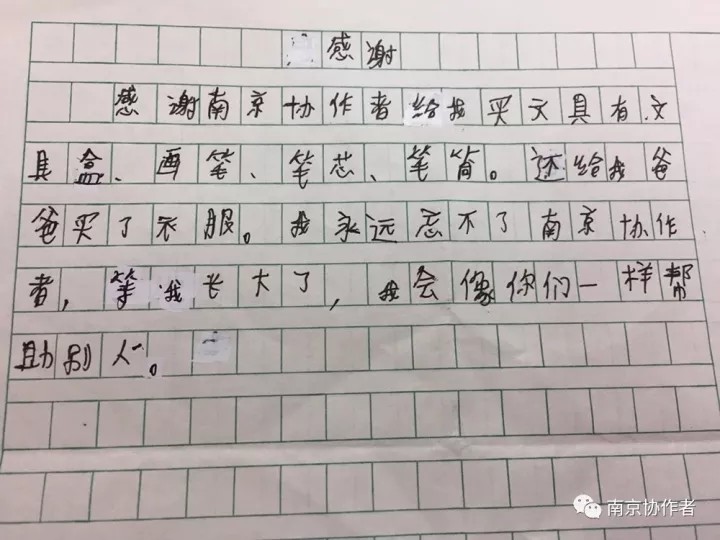 感谢
感谢南京协作者给我买文具有文
具盒、画笔、笔芯、笔筒。还给我爸
爸买了衣服。我永远忘不了南京协作
者，等我长大了，我会像你们一样帮
助别人。
南京协作者